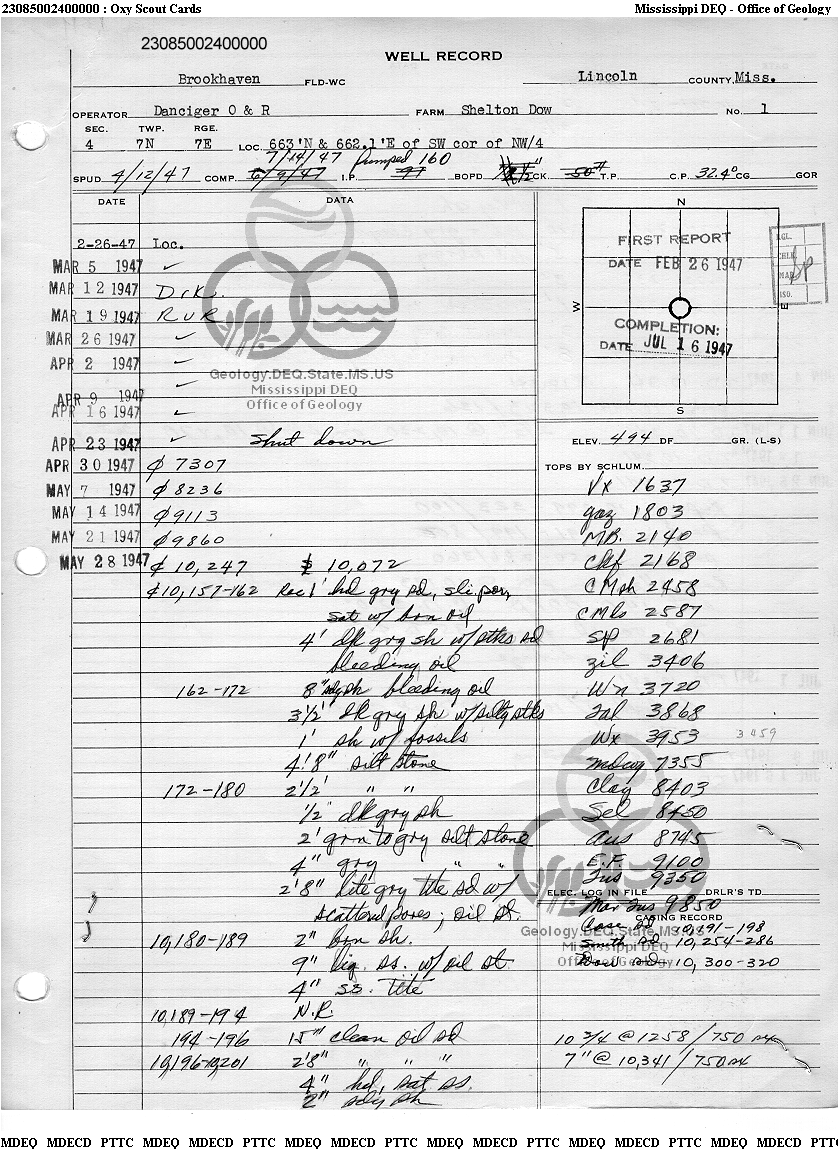 23085002400000 : Oxy Scout Cards Mississippi DEQ - Office of Geology
23085002400000
WELL RECORD
Brookhaven FLD-WC Lincoln COUNTY, Miss.
OPERATOR Danciger O & R FARM Shelton Dow No. 1
SEC. TWP. RGE.
4 7N 7E LOC. 663'N & 662.1'E of SW cor of NW/4
7/14/47 Pumped 160
SPUD 4/12/47 COMP. 6/9/47 I.P. 97 BOPD CK. 50# T.P. C.P. 32.4° CG GOR
DATE DATA
2-26-47 Loc.
MAR 5 1947 ✓
MAR 12 1947 Drk.
MAR 19 1947 RUR
MAR 26 1947 ✓
APR 2 1947 ✓
APR 9 1947 ✓
APR 16 1947 ✓
APR 23 1947 ✓ Shut down
APR 30 1947 ₵ 7307
MAY 7 1947 ₵ 8236
MAY 14 1947 ₵ 9113
MAY 21 1947 ₵ 9860
MAY 28 1947 ₵ 10,247 $ 10,072
₵ 10,157-162 Rec 1' hd gry sd, sli por,
sat w/ brn oil
4' dk gry sh w/ stks sd
bleeding oil
162-172 8" sdy sh bleeding oil
3 1/2' dk gry sh w/ silty stks
1' sh w/ fossils
4'8" silt stone
172-180 2 1/2' " "
1/2' dk gry sh
2' grn to gry silt stone
4" gry " "
2'8" lite gry tite sd w/
scattered pores; oil st.
10,180-189 2" brn sh.
9" lig. ss. w/ oil st
4" ss. tite
10,189-194 N.R.
194-196 15" clean oil sd
10,196-10,201 2'8" " " "
4" hd, sat ss.
2" sdy sh
Geology.DEQ.State.MS.US
Mississippi DEQ
Office of Geology
N
W
E
S
FIRST REPORT
DATE FEB 26 1947
COMPLETION:
DATE JUL 16 1947
ELEV. 494 DF GR. (L-S)
TOPS BY SCHLUM.
Vx 1637
gaz 1803
MB. 2140
Ckf 2168
CMph 2458
CMls 2587
SP 2681
zil 3406
Wn 3720
Tal 3868
Wx 3953 3959
mdwy 7355
Clay 8403
Sel 8450
Aus 8745
E.F. 9100
Tus 9350
ELEC. LOG IN FILE DRLR'S TD
Mar Tus 9850
CASING RECORD
10,191-198
Smith sd 10,254-286
Dow sd 10,300-320
Geology.DEQ.State.MS.US
Mississippi DEQ
Office of Geology
10 3/4 @ 1258/750 sx
7" @ 10,341/750 sx
MDEQ MDECD PTTC MDEQ MDECD PTTC MDEQ MDECD PTTC MDEQ MDECD PTTC MDEQ MDECD PTTC MDEQ MDECD PTTC